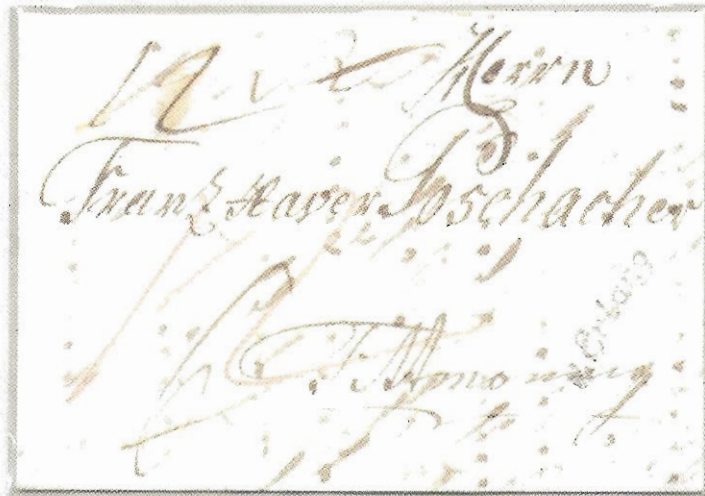 Herrn
Franz Xaver Poschacher
Tittmoning